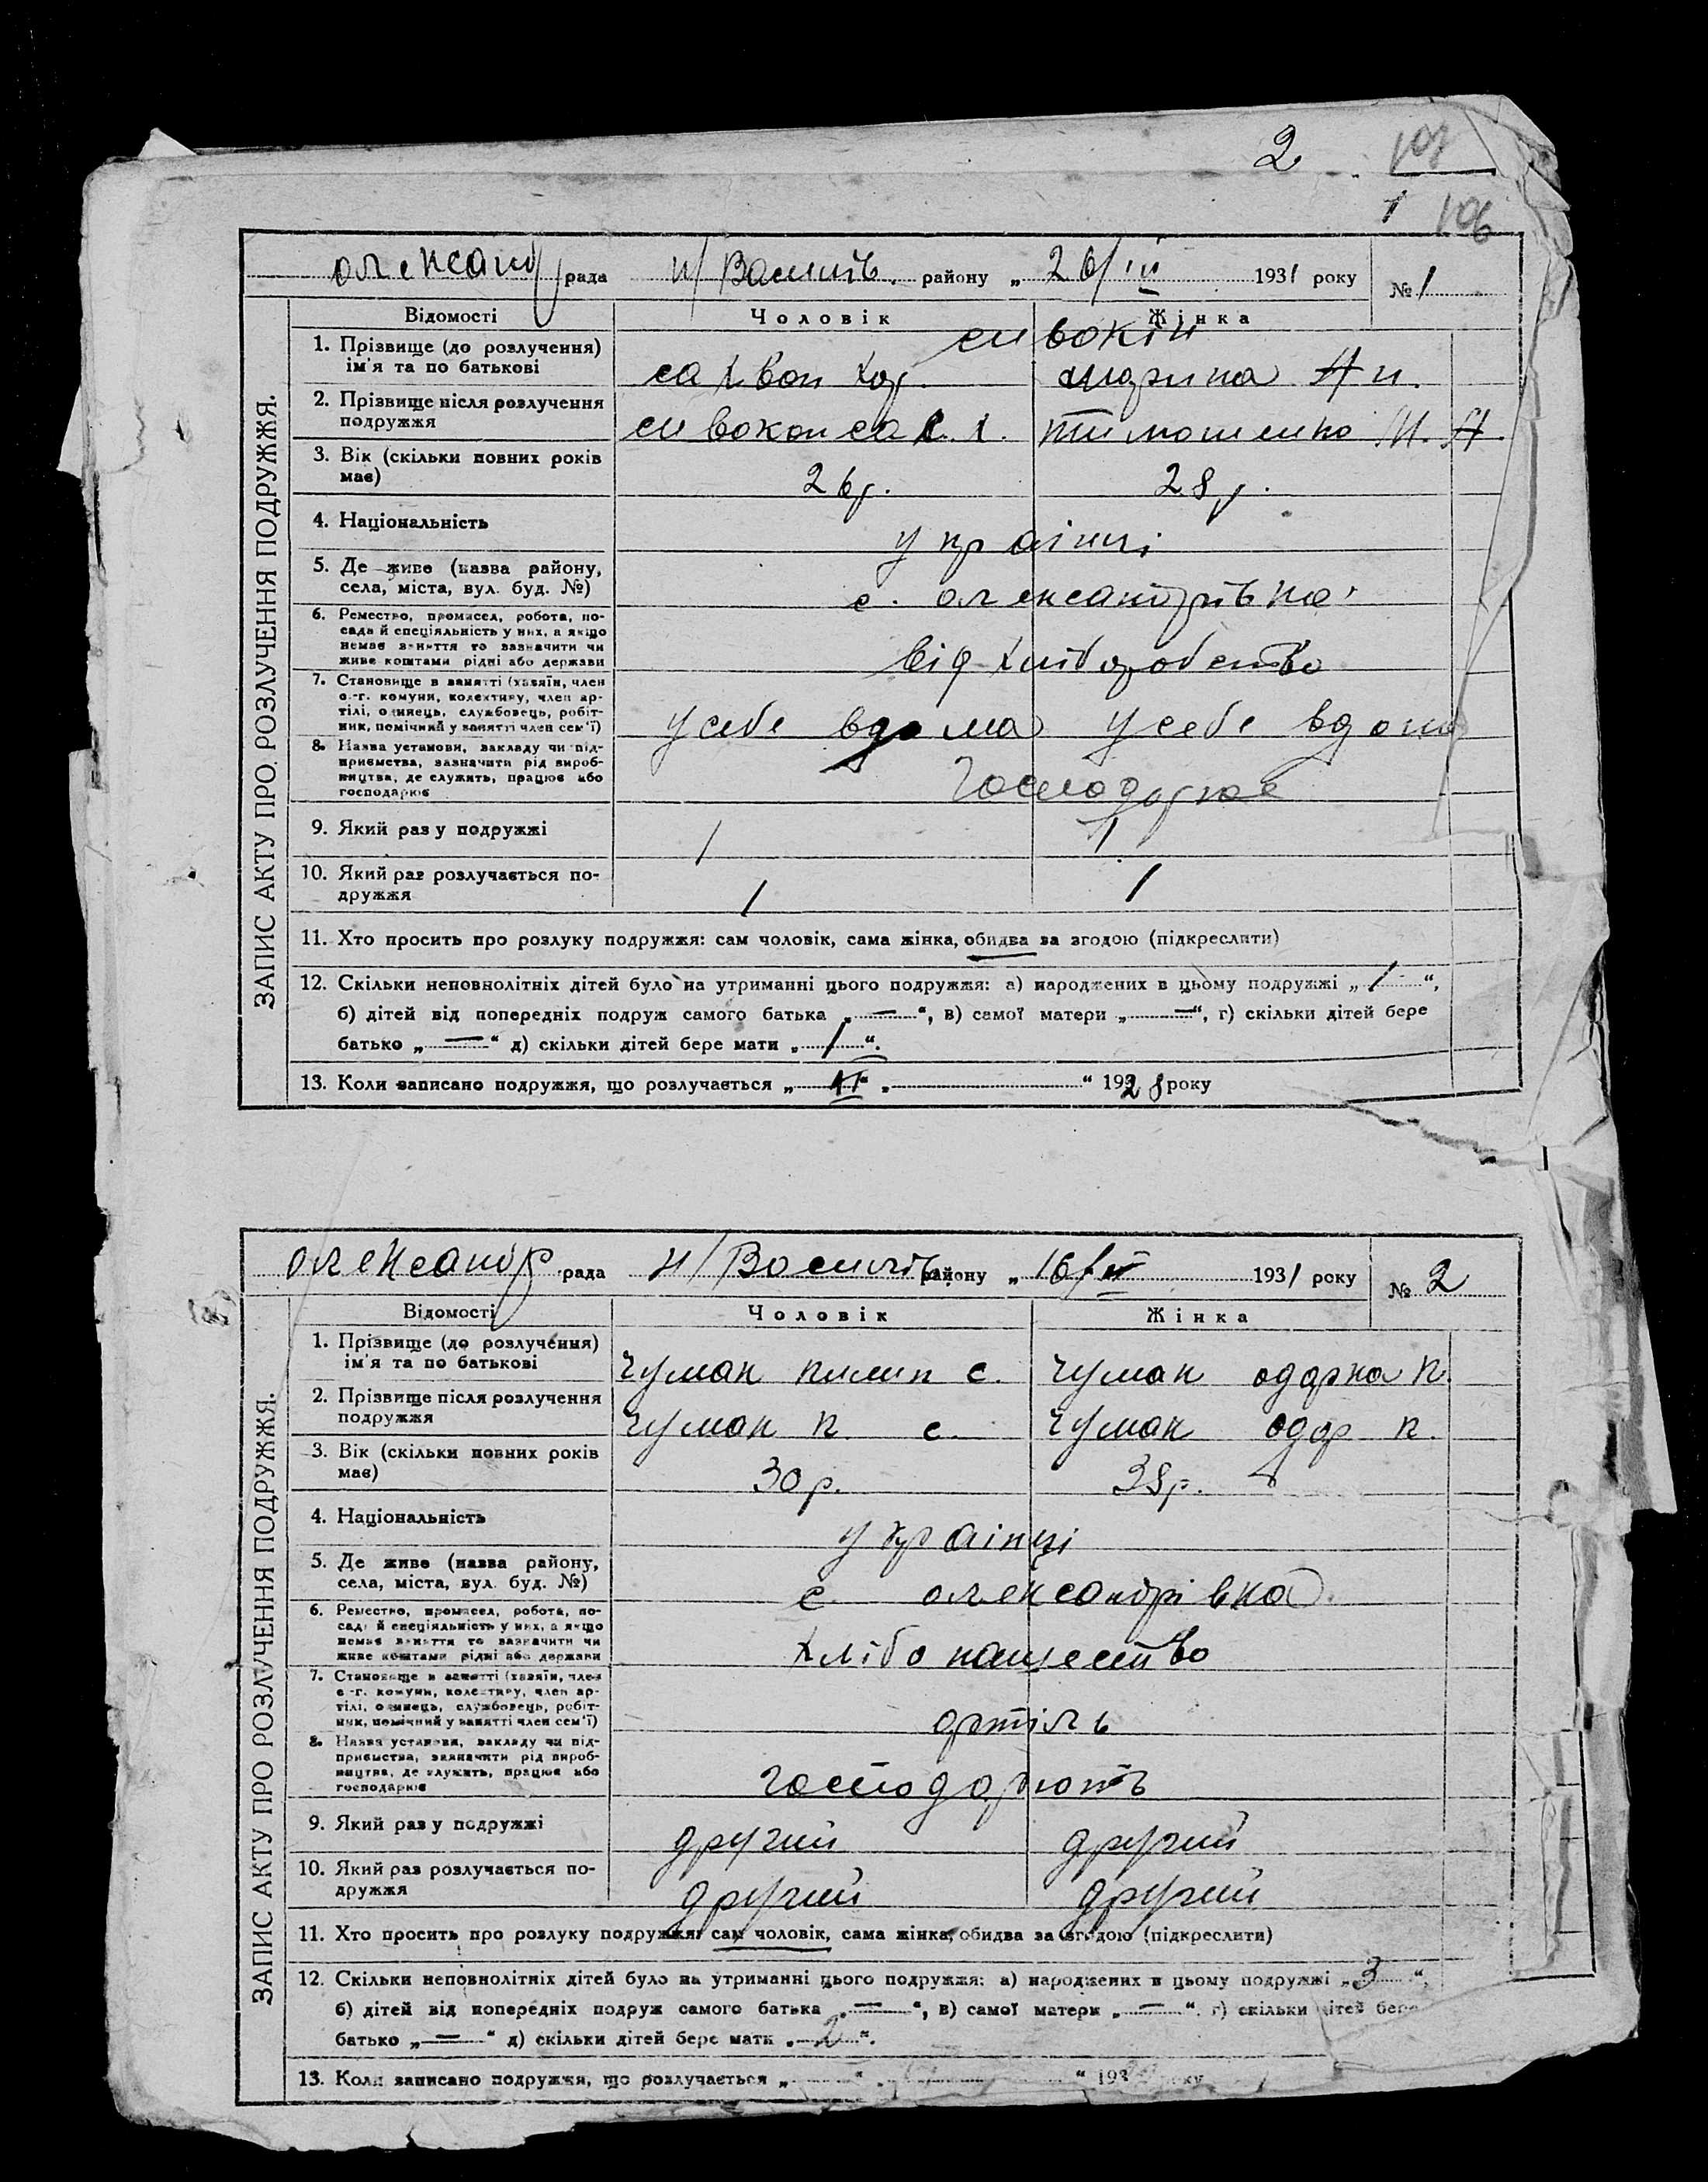 2
1
106
олександр рада н/Василів. району „ 26/III 1931 року №1
Відомості Чоловік Жінка
ЗАПИС АКТУ ПРО РОЗЛУЧЕННЯ ПОДРУЖЖЯ.
сивокін
1. Прізвище (до розлучення)
ім'я та по батькові
2. Прізвище після розлучення
подружжя
тимошенко
3. Вік (скільки повних років
має)
26р. 28р.
4. Національність
українці
5. Де живе (назва району,
села, міста, вул. буд. №)
с. олександрівка
6. Ремество, промисел, робота, по-
сада й спеціяльність у них, а якщо
немає заняття то зазначити чи
живе коштами рідні або держави
від хліборобство
7. Становище в занятті (хазяїн, член
с.-г. комуни, колективу, член ар-
тілі, одинець, службовець, робіт-
ник, помічний у занятті член сем'ї)
у себе вдома у себе вдома
8. Назва установи, закладу чи під-
приємства, зазначити рід вироб-
ництва, де служить, працює або
господарює
господарює
9. Який раз у подружжі
1 1
10. Який раз розлучається по-
дружжя
1 1
11. Хто просить про розлуку подружжя: сам чоловік, сама жінка, обидва за згодою (підкреслити)
12. Скільки неповнолітніх дітей було на утриманні цього подружжя: а) народжених в цьому подружжі „ 1 “,
б) дітей від попередніх подруж самого батька „ — “, в) самої матери „ — “, г) скільки дітей бере
батько „ — “ д) скільки дітей бере мати „ 1 “.
13. Коли записано подружжя, що розлучається „ “ „ “ 1928 року
олександр рада н/Василів. району „ 16/ 1931 року № 2
Відомості Чоловік Жінка
ЗАПИС АКТУ ПРО РОЗЛУЧЕННЯ ПОДРУЖЖЯ.
1. Прізвище (до розлучення)
ім'я та по батькові
чумак пилип с. чумак одарка п.
2. Прізвище після розлучення
подружжя
чумак п. с. чумак одар п.
3. Вік (скільки повних років
має)
30р. 38р.
4. Національність
українці
5. Де живе (назва району,
села, міста, вул. буд. №)
с. олександрівка
6. Ремество, промисел, робота, по-
сада й спеціяльність у них, а якщо
немає заняття то зазначити чи
живе коштами рідні або держави
7. Становище в занятті (хазяїн, член
с.-г. комуни, колективу, член ар-
тілі, одинець, службовець, робіт-
ник, помічний у занятті член сем'ї)
артіль
8. Назва установи, закладу чи під-
приємства, зазначити рід вироб-
ництва, де служить, працює або
господарює
господарюють
9. Який раз у подружжі
другий другий
10. Який раз розлучається по-
дружжя
другий другий
11. Хто просить про розлуку подружжя: сам чоловік, сама жінка, обидва за згодою (підкреслити)
12. Скільки неповнолітніх дітей було на утриманні цього подружжя: а) народжених в цьому подружжі „ 3 “,
б) дітей від попередніх подруж самого батька „ — “, в) самої матери „ — “. г) скільки дітей бере
батько „ — “ д) скільки дітей бере мати „ 2 “.
13. Коли записано подружжя, що розлучається „ “ „ “ 193 року